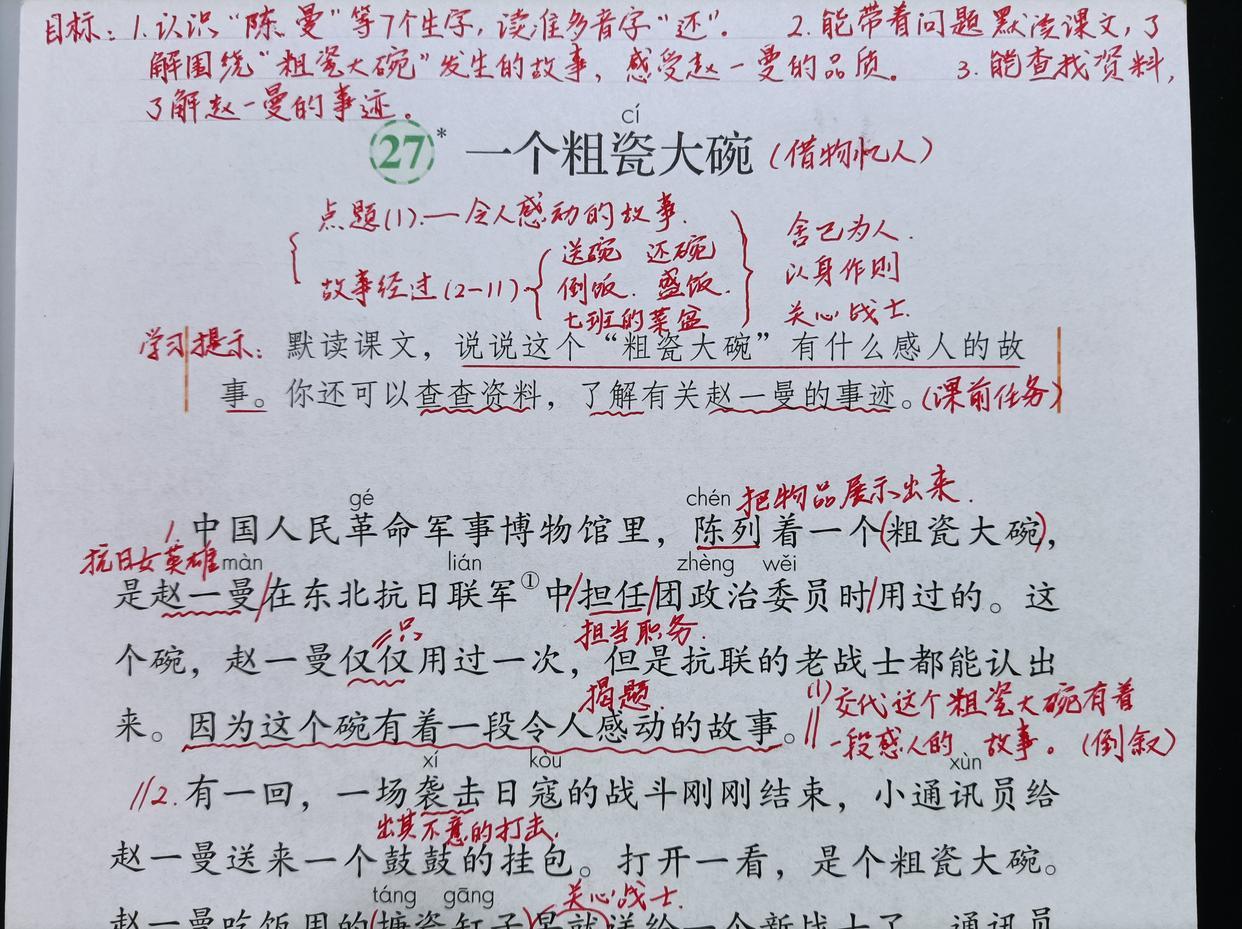 目标：1.认识“陈、曼”等7个生字，读准多音字“还”。 2.能带着问题默读课文，了
解围绕“粗瓷大碗”发生的故事，感受赵一曼的品质。 3.能查找资料，
了解赵一曼的事迹。
cí
27* 一个粗瓷大碗（借物忆人）
点题(1).—令人感动的故事.
送碗 还碗
舍己为人.
故事经过(2-11)
倒饭. 盛饭.
以身作则
七班的菜盆
关心战士.
学习提示：默读课文，说说这个“粗瓷大碗”有什么感人的故
事。你还可以查查资料，了解有关赵一曼的事迹。（课前任务）
gé chén 把物品展示出来.
1.中国人民革命军事博物馆里，陈列着一个(粗瓷大碗)，
抗日女英雄 màn lián zhèng wěi
是赵一曼/在东北抗日联军①中/担任/团政治委员时/用过的。这
只 担当职务.
个碗，赵一曼仅仅用过一次，但是抗联的老战士都能认出
揭题.
来。因为这个碗有着一段令人感动的故事。
(1)交代这个粗瓷大碗有着
一段感人的 故事。（倒叙）
xí kòu xùn
//2.有一回，一场袭击日寇的战斗刚刚结束，小通讯员给
出其不意的打击.
赵一曼送来一个鼓鼓的挂包。打开一看，是个粗瓷大碗。
táng gāng 关心战士.
赵一曼吃饭用的(搪瓷缸子)早就送给一个新战士了，通讯员